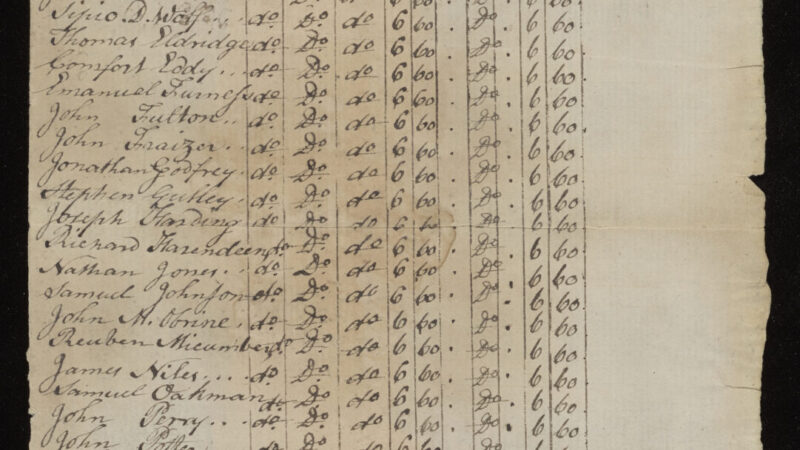 do Do do 6 60 . Do . 6 60
Thomas Eldridge do Do. do 6 60 . Do . 6 60
Comfort Eddy .. do Do. do 6 60 . Do . 6 60.
Emanuel Furness do Do. do 6 60 . Do . 6 60.
John Fulton .. do. Do. do 6 60 . Do . 6 60.
John Fraizer .. do. Do. do 6 60 . Do . 6 60.
Jonathan Godfrey . do. Do. do 6 60 . Do . 6 60.
Stephen Gulley . do. Do. do 6 60 . Do . 6 60.
Joseph Harding do Do. do 6 60 . Do . 6 60.
Richard Harendeen do. Do. do 6 60 . Do . 6 60.
Nathan Jones .. do. Do. do 6 60 . Do . 6 60.
Samuel Johnson do. Do. do 6 60 . Do . 6 60.
John M. Obrine . do. Do. do 6 60 . Do . 6 60.
Reuben Micumber do. Do. do 6 60 . Do . 6 60.
James Niles ... do. Do. do 6 60 . Do . 6 60.
Samuel Oakman do. Do. do 6 60 . Do . 6 60.
John Perry ... do. Do. do 6 60 . Do . 6 60.
John do. Do. do 6 60 . Do . 6 60.